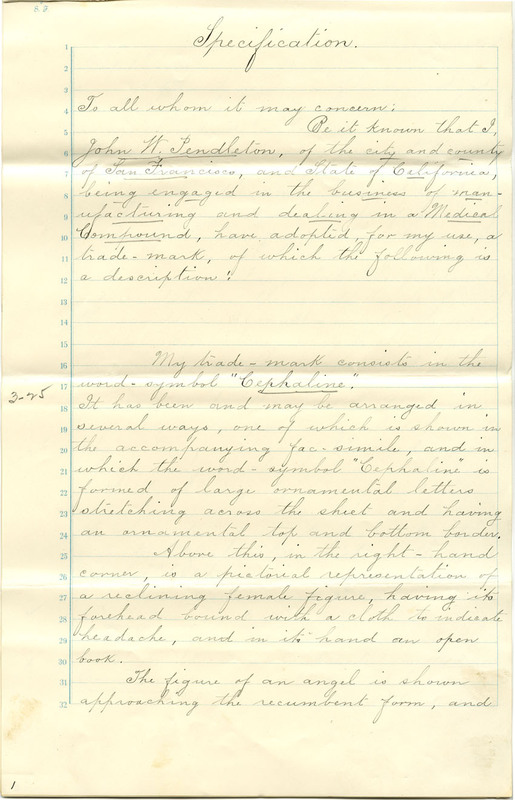 Specification.
To all whom it may concern:
Be it known that I,
John W. Pendleton, of the city and county
of San Francisco, and State of California,
being engaged in the business of man-
ufacturing and dealing in a Medical
Compound, have adopted, for my use, a
trade-mark, of which the following is
a description:
My trade-mark consists in the
word-symbol "Cephaline".
3-25
It has been and may be arranged in
several ways, one of which is shown in
the accompanying fac-simile, and in
which the word-symbol "Cephaline" is
formed of large ornamental letters
stretching across the sheet and having
an ornamental top and bottom border.
Above this, in the right-hand
corner, is a pictorial representation of
a reclining female figure, having its
forehead bound with a cloth to indicate
headache, and in its hand an open
book.
The figure of an angel is shown
approaching the recumbent form, and
1